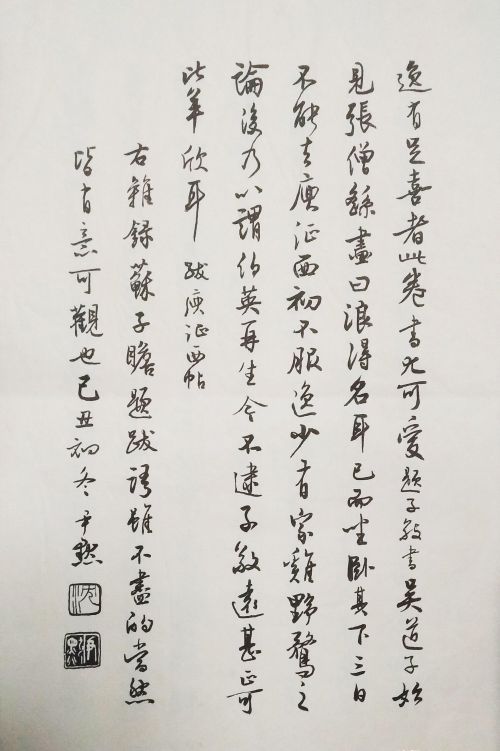 逸有足喜者此卷書尤可愛題子敬書吳道子始
見張僧繇畫曰浪得名耳已而坐臥其下三日
不能去庾征西初不服逸少有家雞野鶩之
論後乃以謂伯英再生今不逮子敬遠甚正可
比羊欣耳 跋庾征西帖
右雜錄蘇子瞻題跋語雖不盡的當然
皆有意可觀也己丑初冬尹默
沈
尹默